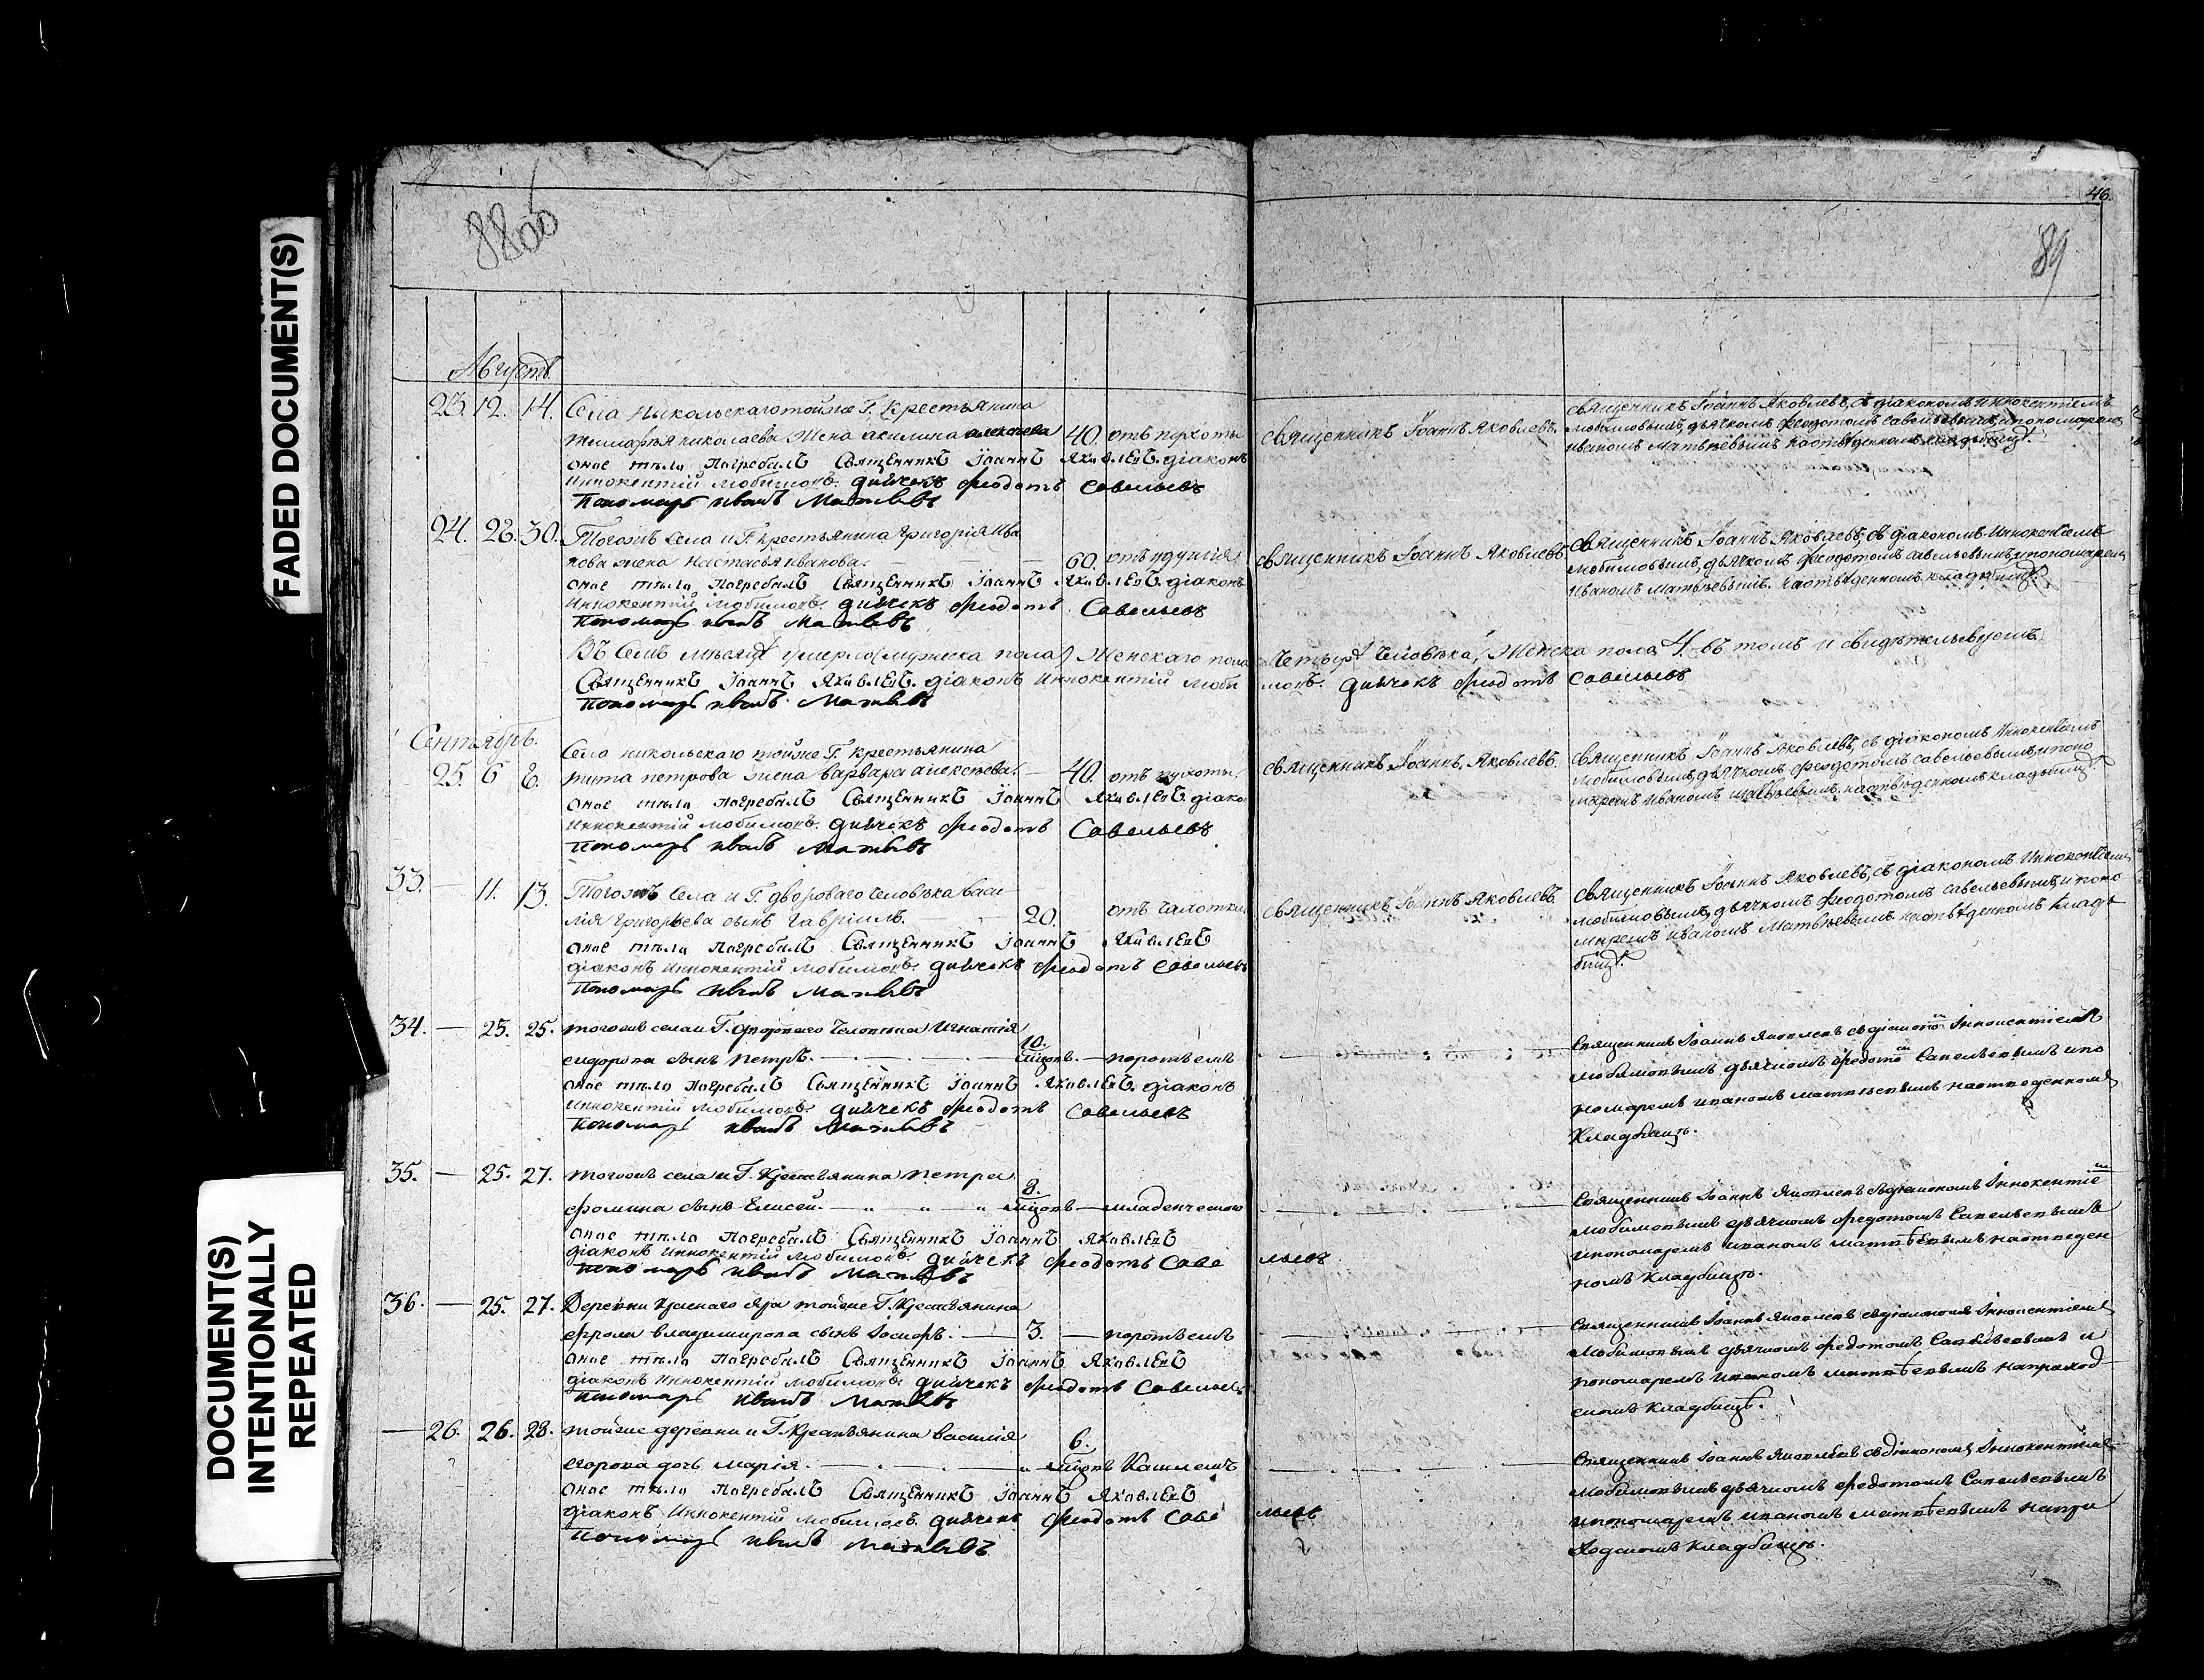 FADED DOCUMENT(S)
DOCUMENT(S)
INTENTIONALLY
REPEATED
88об
46.
89
Августъ.
23. 12. 14. Села Никольскаго тойже Г. Крестьянина
Николаева Жена акилина 40.
оное тѣло Погребалъ Священникъ Іоаннъ Яковлевъ. діаконъ
Иннокентій Любимовъ. дьячекъ Феодотъ Савельевъ
Пономарь иванъ Матвѣевъ
священникъ Іоаннъ Яковлевъ.
священникъ Іоаннъ Яковлевъ, съ діакономъ иннокентіемъ
любимовымъ, дьячкомъ феодотомъ савельевымъ, и пономаремъ
иваномъ матвѣевымъ на отведенномъ кладбищѣ.
24. 28. 30. Тогожъ Села и Г. крестьянина Григорія Ива
нова жена Настасья иванова. 60. отъ удушія
оное тѣло Погребалъ Священникъ Іоаннъ Яковлевъ. діаконъ
Иннокентій Любимовъ. дьячекъ Феодотъ Савельевъ
Пономарь иванъ Матвѣевъ
священникъ Іоаннъ Яковлевъ
священникъ Іоаннъ Яковлевъ, съ діакономъ Иннокентіемъ
любимовымъ, дьячкомъ феодотомъ савельевымъ, и пономаремъ
иваномъ матвѣевымъ. на отведенномъ кладбищѣ.
Въ Семъ мѣсяцѣ умерло мужеска пола Женскаго пола Четыре Человѣка, Женска пола 4. въ томъ и свидѣтельствуемъ
Священникъ Іоаннъ Яковлевъ. діаконъ Иннокентій Люби мовъ. дьячекъ Феодотъ Савельевъ
Пономарь иванъ Матвѣевъ
Сентябрь.
Села никольскаго тойже Г. крестьянина
25. 6 8. тита петрова жена варвара алексѣева. 40.
оное тѣло Погребалъ Священникъ Іоаннъ Яковлевъ. діако
Иннокентій Любимовъ. дьячекъ Феодотъ Савельевъ
Пономарь иванъ Матвѣевъ
священникъ Іоаннъ Яковлевъ.
священникъ Іоаннъ Яковлевъ, съ діакономъ Иннокентіемъ
любимовымъ, дьячкомъ феодотомъ савельевымъ, и поно
маремъ иваномъ матвѣевымъ. на отведенномъ кладбищѣ
33. — 11. 13. Тогожъ Села и Г. двороваго Человѣка Васи
лія Григорьева сынъ Гавріилъ. 20. отъ чахотки
оное тѣло Погребалъ Священникъ Іоаннъ Яковлевъ
діаконъ Иннокентій Любимовъ. дьячекъ Феодотъ Савельевъ
Пономарь иванъ Матвѣевъ
священникъ Іоаннъ Яковлевъ.
священникъ Іоаннъ Яковлевъ, съ діакономъ Иннокентіемъ
любимовымъ, дьячкомъ феодотомъ савельевымъ, и поно
маремъ иваномъ Матвѣевымъ на отведенномъ кладъ
бищѣ.
34. — 23. 25. тогожъ села и Г. двороваго Человѣка Игнатія
сидорова сынъ петръ. 10.
оное тѣло Погребалъ Священникъ Іоаннъ Яковлевъ. діаконъ
Иннокентій Любимовъ. дьячекъ Феодотъ Савельевъ
Пономарь иванъ Матвѣевъ
Священникъ Іоаннъ Яковлевъ съ діакономъ Іннокентіемъ
любимовымъ дьячкомъ федотомъ Савельевымъ и по
номаремъ иваномъ матвѣевымъ на отведенномъ
Кладбищѣ.
35. — 25. 27. тогожъ села и Г. Крестьянина петра
фомина сынъ Елисей. 8. младенческою
оное тѣло Погребалъ Священникъ Іоаннъ Яковлевъ
діаконъ Иннокентій Любимовъ. дьячекъ Феодотъ Саве льевъ
Пономарь иванъ Матвѣевъ
Священникъ Іоаннъ Яковлевъ съ діакономъ Іннокентіемъ
любимовымъ дьячкомъ федотомъ Савельевымъ
и пономаремъ иваномъ матвѣевымъ на отведен
номъ Кладбищѣ.
36. — 25. 27. Деревни Краснаго Яра тойже Г. Крестьянина
фрола владимирова сынъ Іосифъ. 3.
оное тѣло Погребалъ Священникъ Іоаннъ Яковлевъ
діаконъ Иннокентій Любимовъ. дьячекъ Феодотъ Савельевъ
Пономарь иванъ Матвѣевъ
Священникъ Іоаннъ Яковлевъ съ діакономъ Іннокентіемъ
любимовымъ дьячкомъ федотомъ Савельевымъ и
пономаремъ иваномъ матвѣевымъ на приход
скомъ Кладбищѣ.
— 26. 26. 28. тойже деревни и Г. Крестьянина василія
егорова дочь марія. 6. Кашлемъ
оное тѣло Погребалъ Священникъ Іоаннъ Яковлевъ
діаконъ Иннокентій Любимовъ. дьячекъ Феодотъ Саве льевъ
Пономарь иванъ Матвѣевъ
Священникъ Іоаннъ Яковлевъ съ діакономъ Іннокентіемъ
любимовымъ дьячкомъ федотомъ Савельевымъ
и пономаремъ иваномъ матвѣевымъ на при
ходскомъ Кладбищѣ.